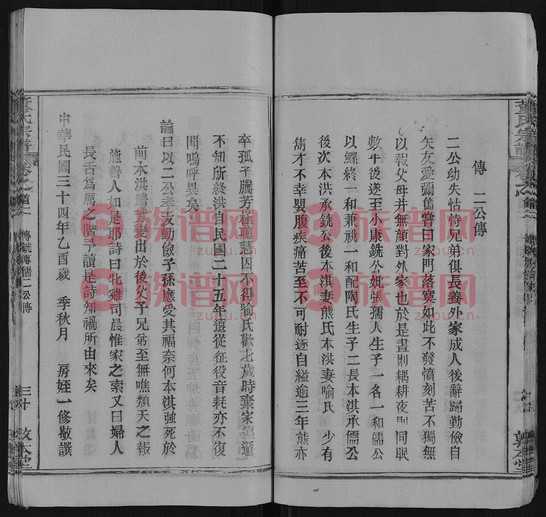 傳 二公傳
二公幼失怙恃兄弟俱長養外家成人後辭歸勤儉自
矢友愛彌篤嘗曰家門落寞如此不發憤刻苦不獨無
以報父母并無顏對外家也於是晝則耦耕夜則同眠
數年後遂至小康銑公妣張孺人生子一名一和儒公
以螺終一和兼祧一和配陶氏生子二長本洪承儒公
次本淇承銑公後本淇妻熊氏本洪妻喻氏 少有
儁才不幸嬰腹疾痛苦至不可耐遂自縊逾三年熊亦
卒孤子騰芳極聰慧因不得喻氏歡七歲時棄家遠遁
不知所終洪自民國二十五年遠從征役音耗亦不復
聞嗚呼異矣
論曰以二公孝友勤儉子孫應愛其福奈何本淇強死於
前本洪騰芳變出於後父子兄弟至無噍類天之報
施善人如是耶詩曰牝雞司晨惟家之索又曰婦人
長舌為厲之階予讀是詩知禍所由來矣
中華民國三十四年乙酉歲 季秋月 房姪一修敬譔
傳 二公傳
三十
敦
族谱网
zupu.cn